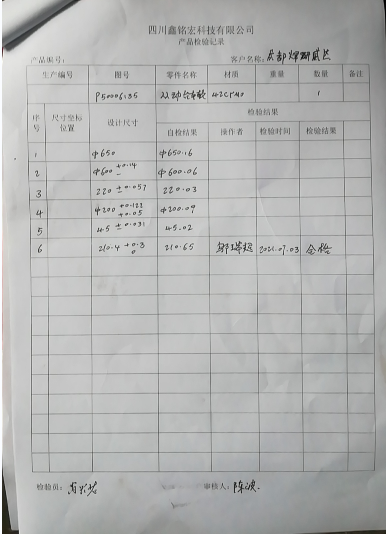 四川鑫铭宏科技有限公司
产品检验记录
产品编号： 客户名称：
生产编号 图号 零件名称 材质 重量 数量 备注
P50006135 42CrMo 1
序号 尺寸坐标位置 设计尺寸 检验结果
自检结果 操作者 检验时间 检验结果
1 φ650 φ650.16
2 φ600 +0.14 - φ600.06
3 220 ±0.057 220.03
4 φ200 +0.123 +0.05 φ200.09
5 45 ±0.031 45.02
6 210.4 +0.3 0 210.65 2021.07.03 合格
检验员： 审核人：陈波